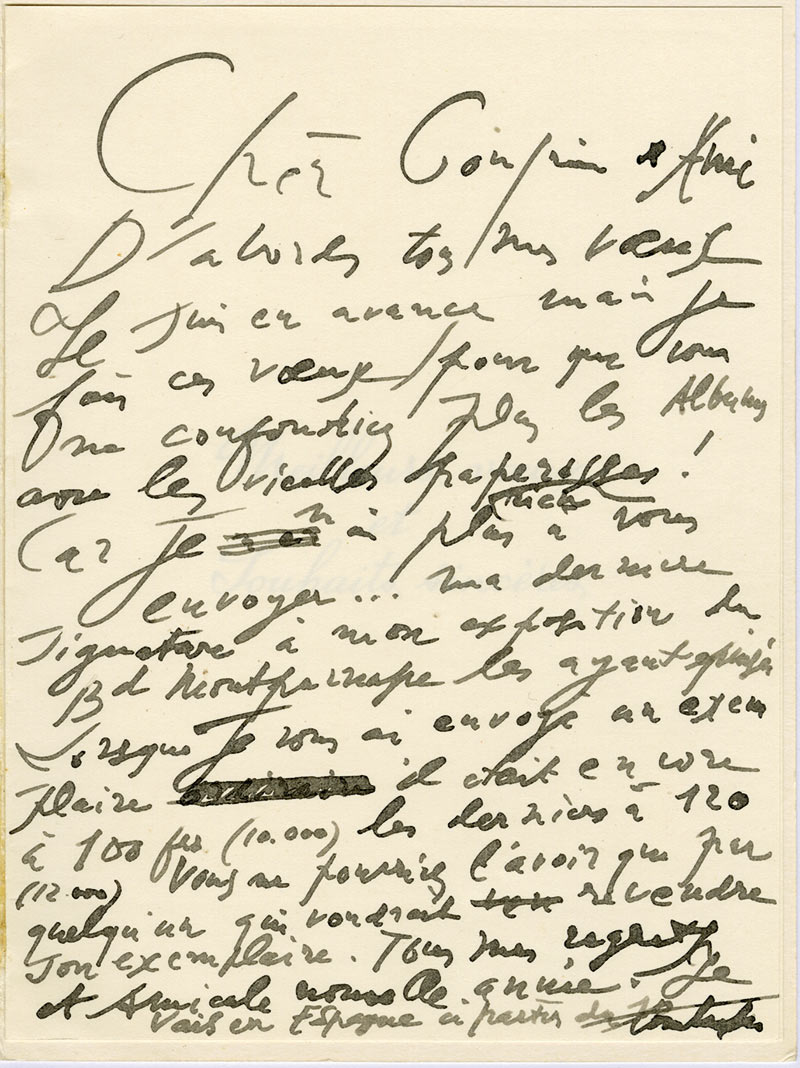 Cher Cousin & Ami
D'abords tous mes vœux
Je suis en avance mais je
fais ces vœux pour que vous
ne confondiez plus les Albums
avec les vieilles paperasses !
Car je n'ai plus rien à vous
envoyer... ma derniere
signature à mon exposition du
Bd Montparnasse les ayant épuisés
Lorsque je vous ai envoyé un exem
plaire il était encore
à 100 frs (10.000) les derniers à 120
(12.000) Vous ne pourriez l'avoir que par
quelqu'un qui voudrait revendre
son exemplaire. Tous mes regrets
et Amicale nouvelle année. Je
vais en Espagne à partir du